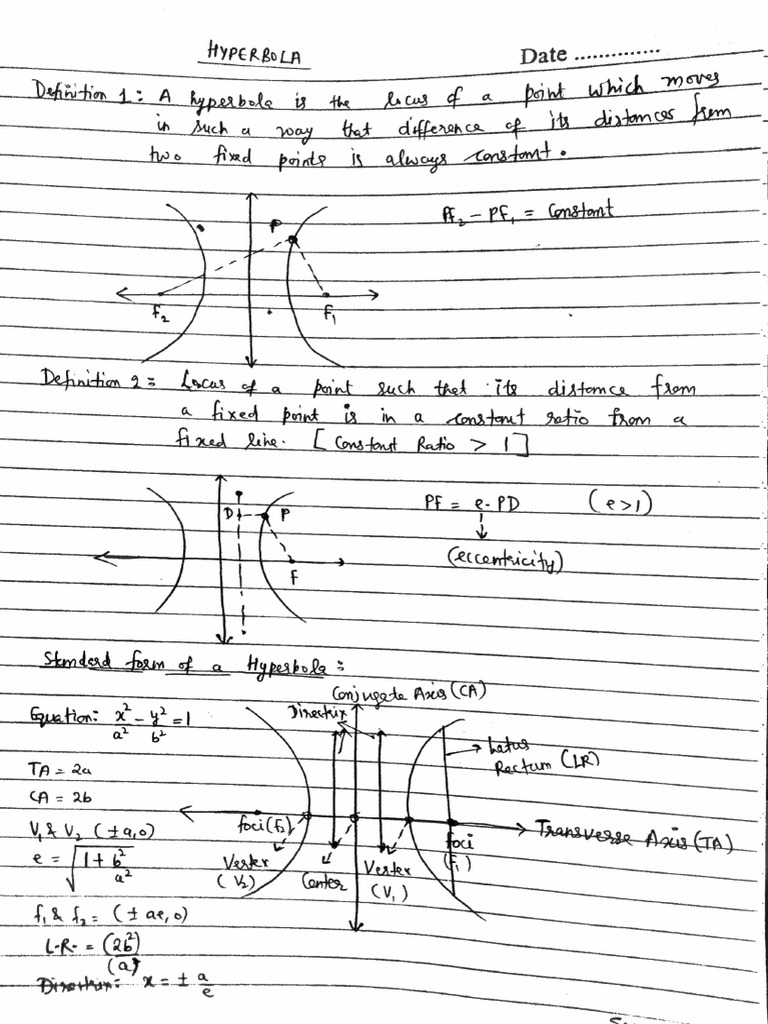 HYPERBOLA
Date ..............
Definition 1: A hyperbola is the locus of a point which moves
in such a way that difference of its distances from
two fixed points is always constant.
PF₂ - PF₁ = Constant
P
F₂
F₁
Definition 2 = Locus of a point such that its distance from
a fixed point is in a constant ratio from a
fixed line. [Constant Ratio > 1]
D
P
F
PF = e.PD (e>1)
(eccentricity)
Standard form of a Hyperbola:
Conjugate Axis (CA)
Directrix
Equation: x²/a² - y²/b² = 1
Latus
Rectum (LR)
TA = 2a
CA = 2b
foci (f₂)
foci
(f₁)
Transverse Axis (TA)
V₁ & V₂ (±a,0)
e = √(1 + b²/a²)
Vertex
(V₂)
Center
Vertex
(V₁)
f₁ & f₂ = (± ae, 0)
L.R. = (2b²)/(a)
Directrix: x = ± a/e